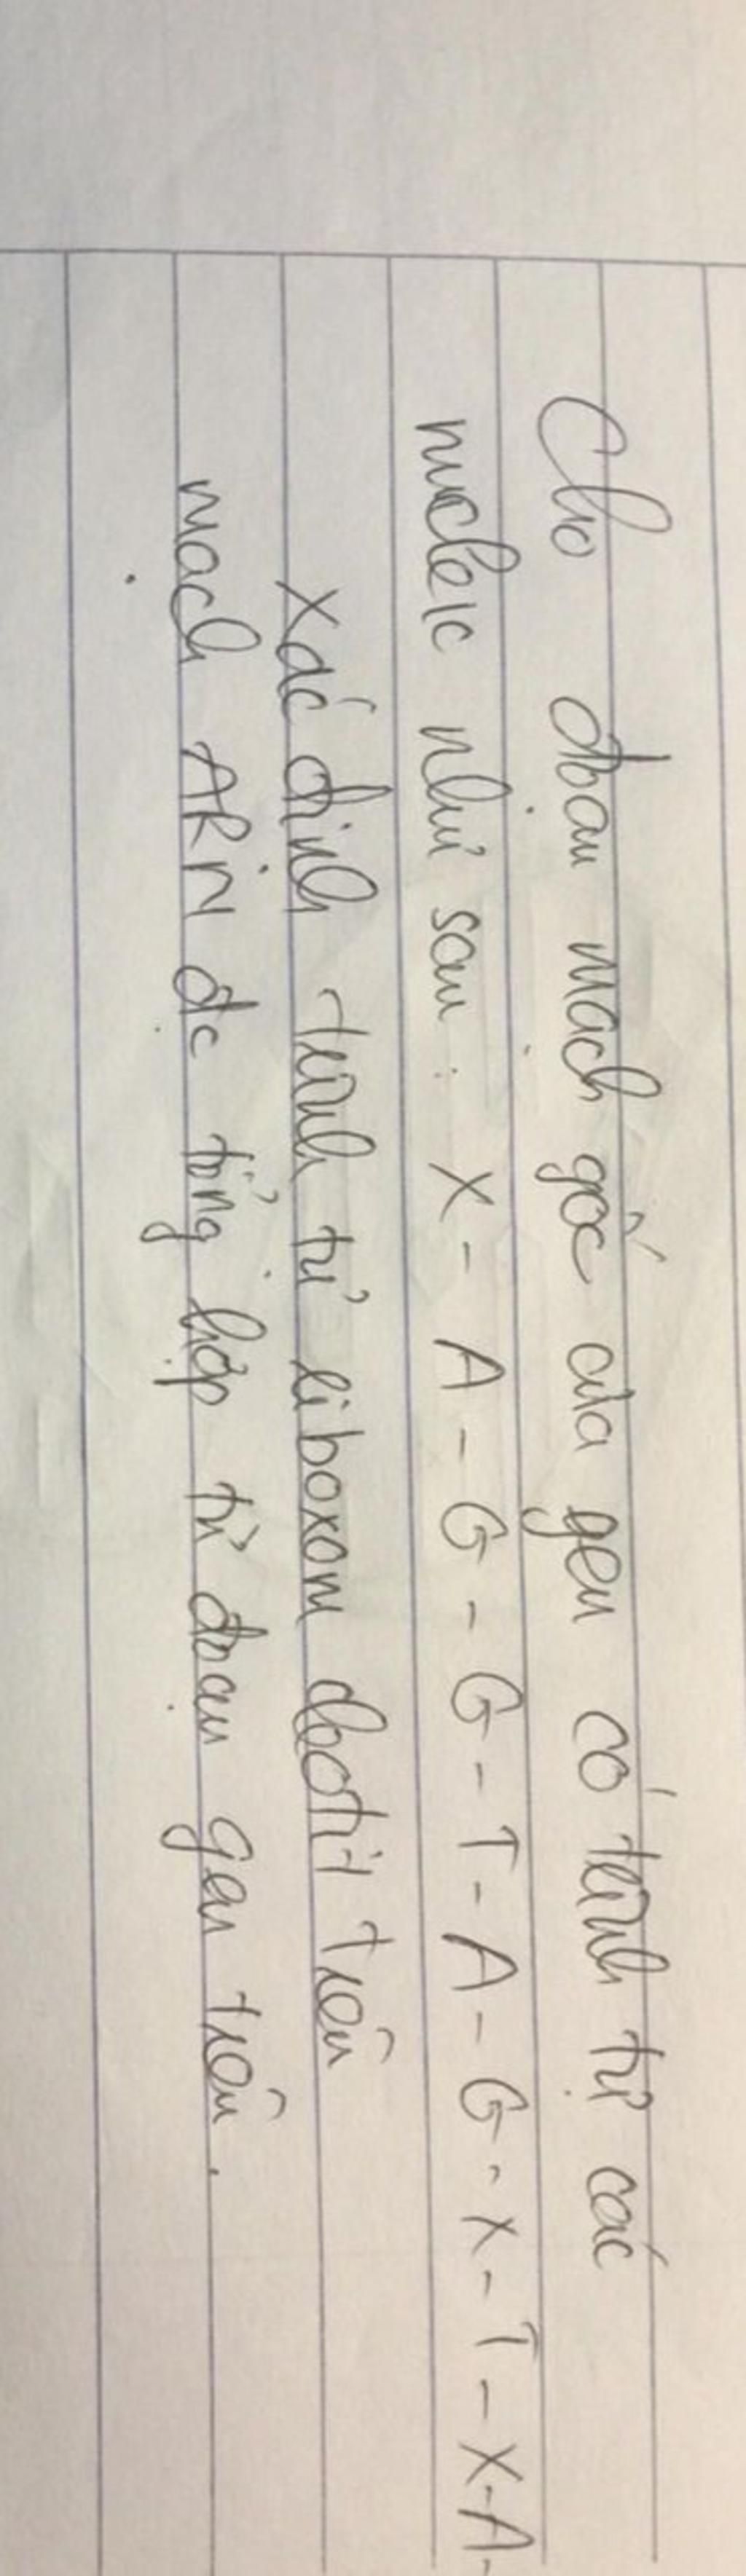 Cho đoạn mạch gốc của gen có trình tự các
nucleic như sau: X - A - G - G - T - A - G - X - T - X - A -
Xác định trình tự riboxom clootit trên
mạch ARN đc tổng hợp từ đoạn gen trên.